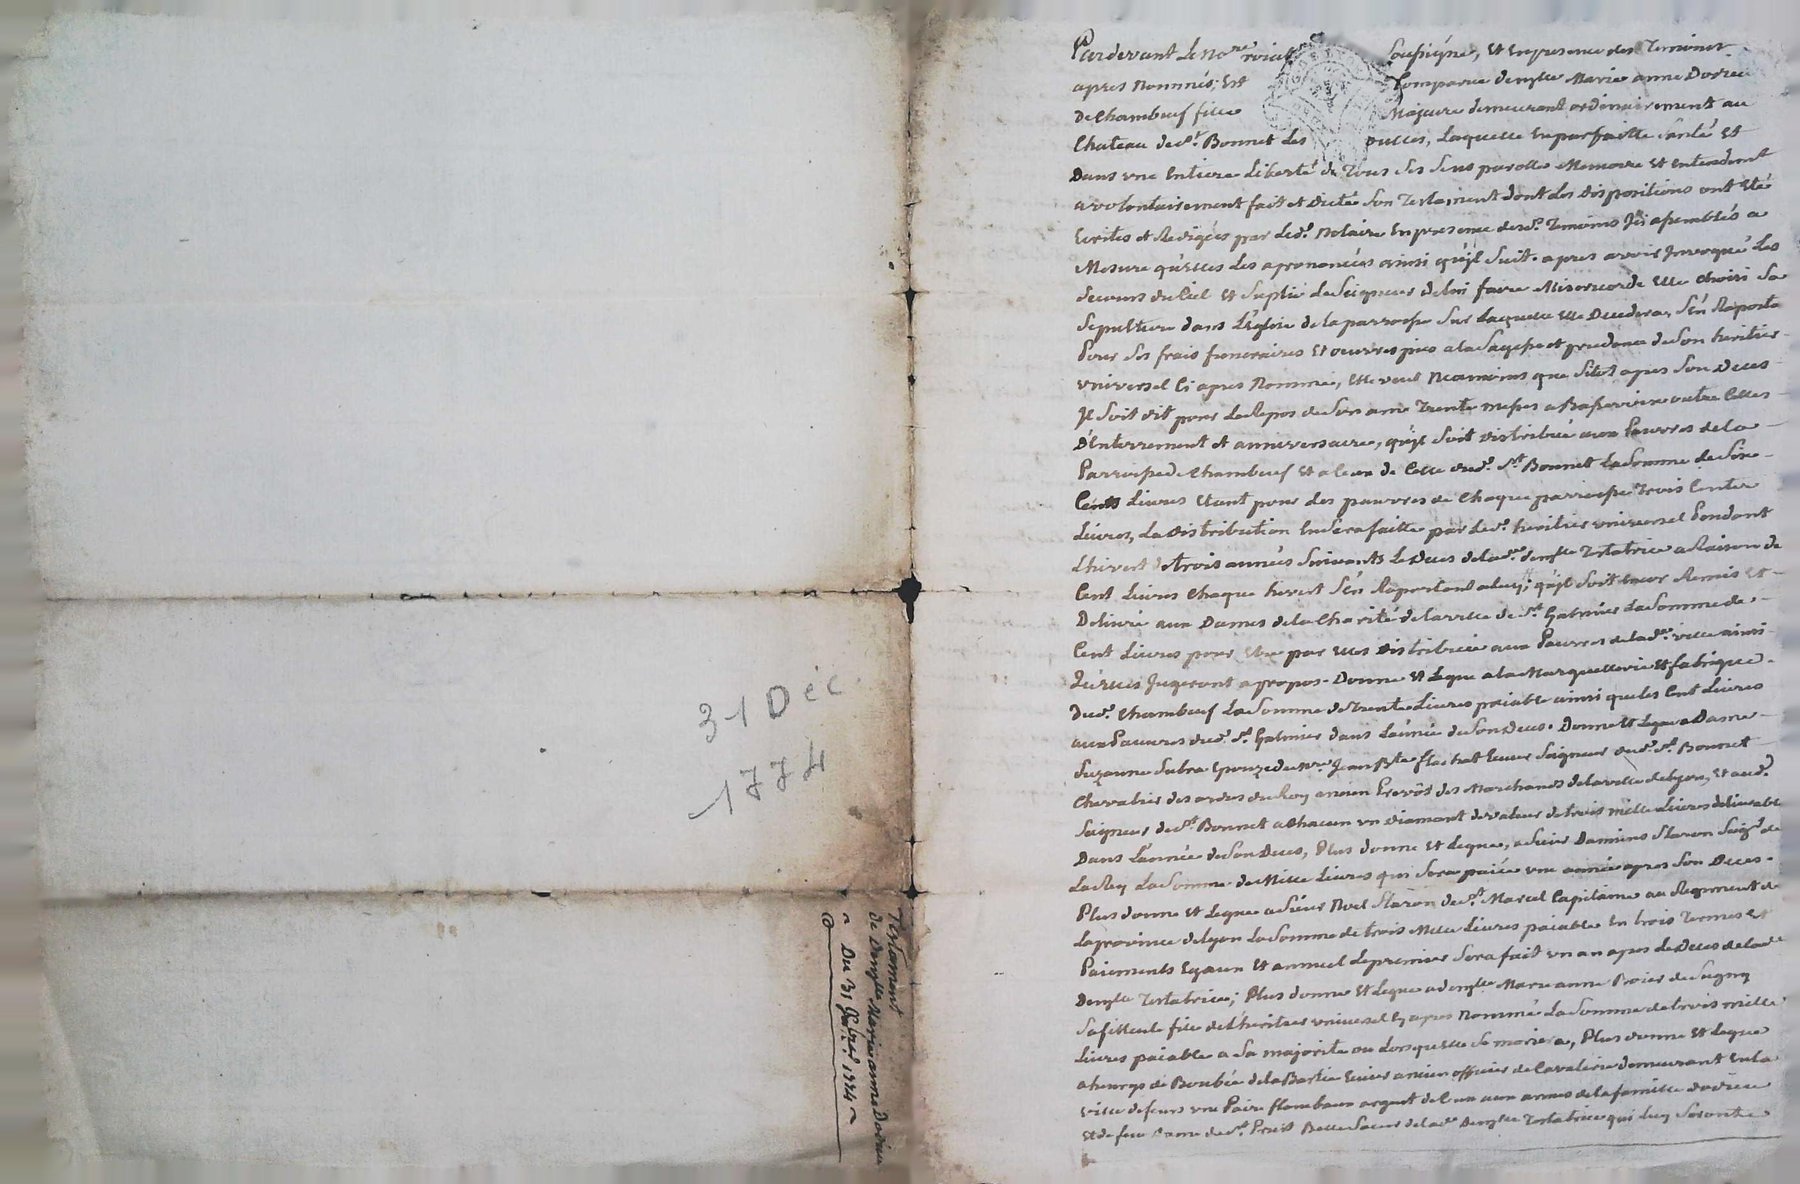 31 Dec.
1774
Testament
de Demlle Marie anne Dorieu
Du 31 Xbre 1774
Pardevant Le Nore roial soussigné, Et En presence des Temoins
apres Nommés; Est Comparue demlle Marie anne Dorieu
de Chambeuf fille Majeure demeurant ordinairement au
Chateau de st. Bonnet Les oulles, Laquelle En parfaitte santé Et
Dans une Entiere Liberté de Tous ses sens parolle Memoire Et Entendemt
a volontairement fait et Dicté son Testament dont Les Dispositions ont Eté
Ecrites et Redigées par Led. Notaire En presence desd. Temoins Ici assemblés a
Mesure qu'Elles Les a prononcées ainsi qu'jl suit. apres avoir Jnvoqué Les
secours du Ciel Et suplié Le seigneur de lui faire Misericorde Elle choisi sa
sepulture dans L'Eglise de la parroisse sur Laquelle Elle Decedera, s'En Raporte
Pour ses frais funeraires Et œuvres pies a la sagesse et prudence de son heritier
universel Ci apres Nommé, Elle veut Neanmoins que sitot apres son Deces
Jl soit dit pour Le Repos de son ame Trente messes a Basse voix outre Celles
D'Enterrement et anniversaire, qu'jl soit distribué aux Pauvres de la
Parroisse de Chambeuf Et a Ceux de Celle dud. st. Bonnet La somme de six
Cents Livres Etant pour Les pauvres de Chaque parroisse Trois Cents
Livres, La Distribution En sera faitte par Led. heritier universel Pendant
L'hivert des trois années suivants Le Deces de lad. demlle Testatrice a Raison de
Cent Livres Chaque hivert s'En Raportant a luy; qu'jl soit Encor Remis Et
Delivré aux Dames de la Charité de la ville de st. Galmier La somme de
Cent Livres pour Etre par Elles Distribuée aux Pauvres de lad. ville ainsi
qu'Elles Jugeront a propos. Donne Et Legue a la Marguellerie Et fabrique
dud. Chambeuf La somme de Trente Livres paiable ainsi que les Cent Livres
aux Pauvres dud. st. Galmier dans L'année de son Deces. Donne Et Legue a Dame
Suzanne Epouze de Mre Jean Bte flachat Seigneur dud. st. Bonnet
Chevalier des ordres du Roy ancien Prevôt des Marchands de la ville de Lyon, Et aud.
Seigneur de st. Bonnet a Chacun un diamant de valeur de trois mille Livres delivrable
Dans L'année de son Deces, Plus donne Et Legue, a sieur Damiens Staron Seigr de
La Rey La somme de Mille Livres qui sera paiée une année apres son Deces.
Plus donne Et Legue a sieur Noel Staron de st. Marcel Capitaine au Regiment de
La province de Lyon La somme de trois Mille Livres paiable En trois Termes Et
Paiements Egaux Et annuel Le premier sera fait un an apres Le Deces de lad.
Demlle Testatrice; Plus donne Et Legue a demlle Marie anne de Sugny
sa filleule fille de L'heritier universel Cy apres Nommé La somme de trois mille
Livres paiable a sa majorité ou Lorsqu'Elle se mariera, Plus donne Et Legue
de Boubée de la Bastie ancien officier de Cavalerie demeurant En la
ville de feurs une Paire flambeaux argent de Lun aux armes de la famille dorieu
Et de feu Dame de st. Priest Belle Soeur de lad. Demlle Testatrice qui luy seronts